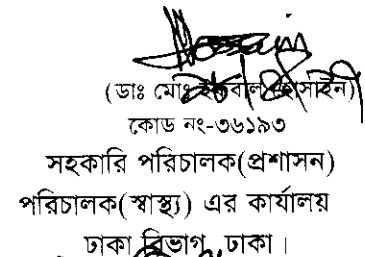 Hossain
(ডাঃ মোঃ ইকবাল হোসাইন)
কোড নং-৩৬১৯৩
সহকারি পরিচালক(প্রশাসন)
পরিচালক(স্বাস্থ্য) এর কার্যালয়
ঢাকা বিভাগ, ঢাকা।